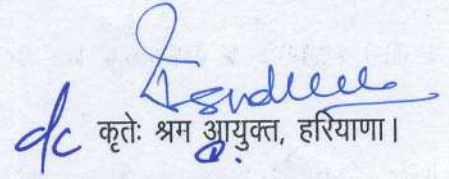 d/c कृतेः श्रम आयुक्त, हरियाणा।